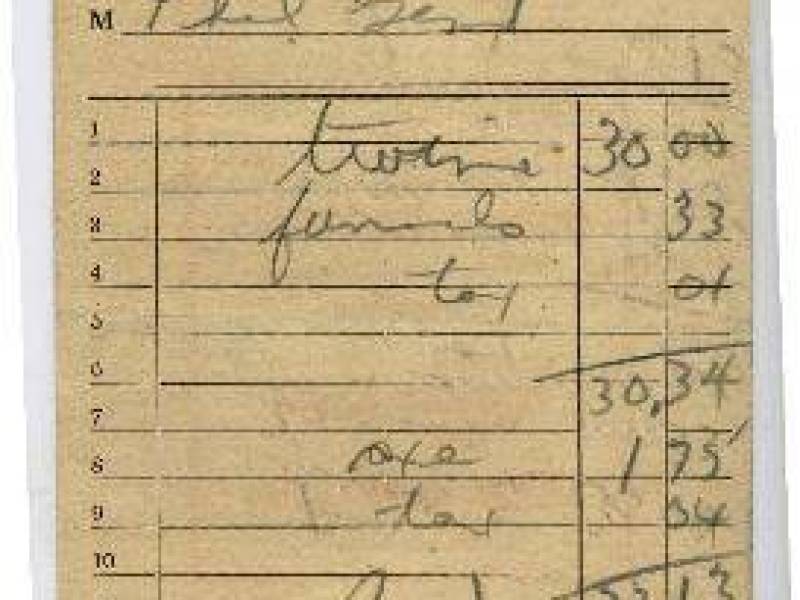 M Phil
1
30 00
2
funnels 33
3
4
tax 01
5
6
30.34
7
axe 1 75
8
9
tax 04
10
32 13